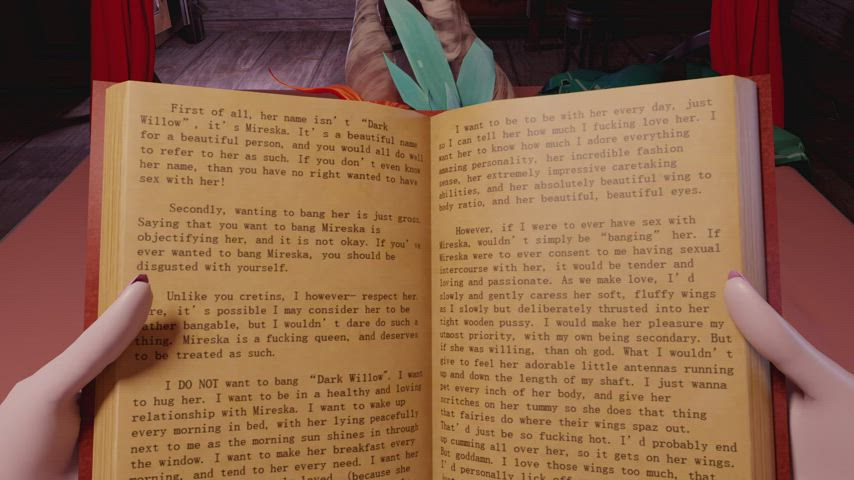 First of all, her name isn't "Dark
Willow", it's Mireska. It's a beautiful name
for a beautiful person, and you would all do well
to refer to her as such. If you don't even know
her name, than you have no right wanted to have
sex with her!
Secondly, wanting to bang her is just gross.
Saying that you want to bang Mireska is
objectifying her, and it is not okay. If you've
ever wanted to bang Mireska, you should be
disgusted with yourself.
Unlike you cretins, I however— respect her.
it's possible I may consider her to be
rather bangable, but I wouldn't dare do such a
thing. Mireska is a fucking queen, and deserves
to be treated as such.
I DO NOT want to bang "Dark Willow". I want
to hug her. I want to be in a healthy and loving
relationship with Mireska. I want to wake up
every morning in bed, with her lying peacefully
next to me as the morning sun shines in through
the window. I want to make her breakfast every
morning, and tend to her every need. I want her
loved. (because she
I want to be to be with her every day, just
so I can tell her how much I fucking love her. I
want her to know how much I adore everything
amazing personality, her incredible fashion
sense, her extremely impressive caretaking
abilities, and her absolutely beautiful wing to
body ratio, and her beautiful, beautiful eyes.
However, if I were to ever have sex with
Mireska, wouldn't simply be "banging" her. If
Mireska were to ever consent to me having sexual
intercourse with her, it would be tender and
loving and passionate. As we make love, I'd
slowly and gently caress her soft, fluffy wings
as I slowly but deliberately thrusted into her
tight wooden pussy. I would make her pleasure my
utmost priority, with my own being secondary. But
if she was willing, than oh god. What I wouldn't
give to feel her adorable little antennas running
up and down the length of my shaft. I just wanna
pet every inch of her body, and give her
scritches on her tummy so she does that thing
that fairies do where their wings spaz out.
That'd just be so fucking hot. I'd probably end
up cumming all over her, so it gets on her wings.
But goddamn. I love those wings too much, that
I'd personally lick off